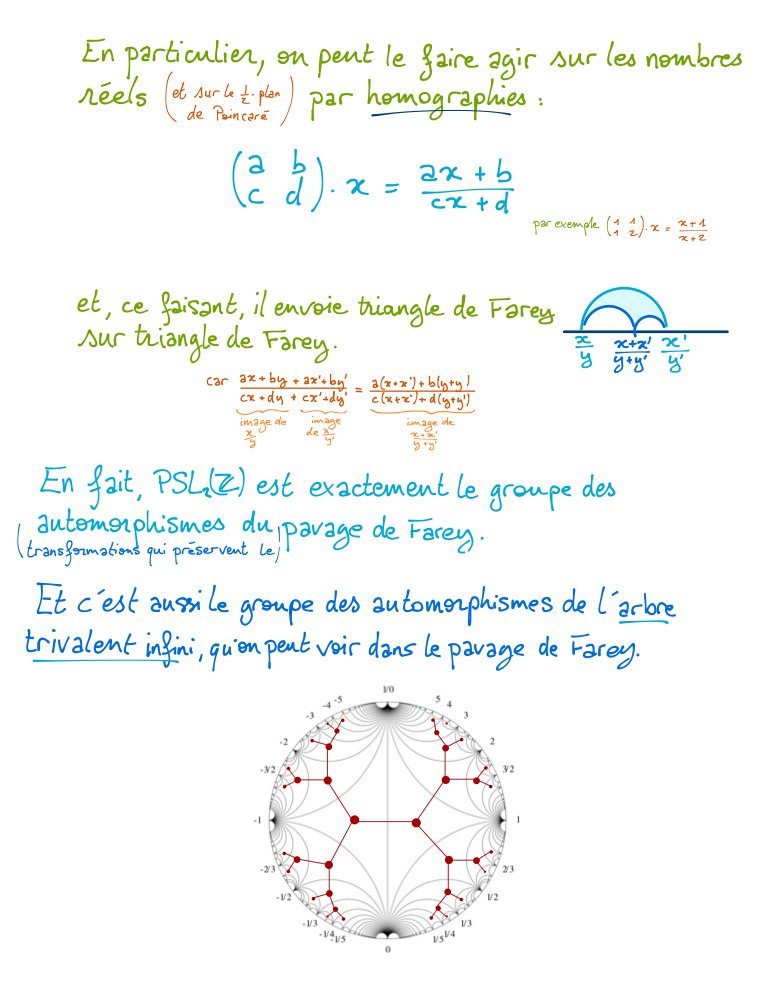 En particulier, on peut le faire agir sur les nombres
réels (et sur le 1/2-plan de Poincaré) par homographies :
(a b
c d) · x = ax + b / cx + d
par exemple (1 1
1 2) · x = x+1 / x+2
et, ce faisant, il envoie triangle de Farey
sur triangle de Farey.
x/y x+x'/y+y' x'/y'
car ax+by + ax'+by' / cx+dy + cx'+dy' = a(x+x')+b(y+y') / c(x+x')+d(y+y')
image de x/y image de x'/y' image de x+x'/y+y'
En fait, PSL₂(ℤ) est exactement le groupe des
automorphismes du pavage de Farey.
(transformations qui préservent le)
Et c'est aussi le groupe des automorphismes de l'arbre
trivalent infini, qu'on peut voir dans le pavage de Farey.
1/0
-5 5
-4 4
-3 3
-2 2
-3/2 3/2
-1 1
-2/3 2/3
-1/2 1/2
-1/3 1/3
-1/4 1/4
-1/5 1/5
0